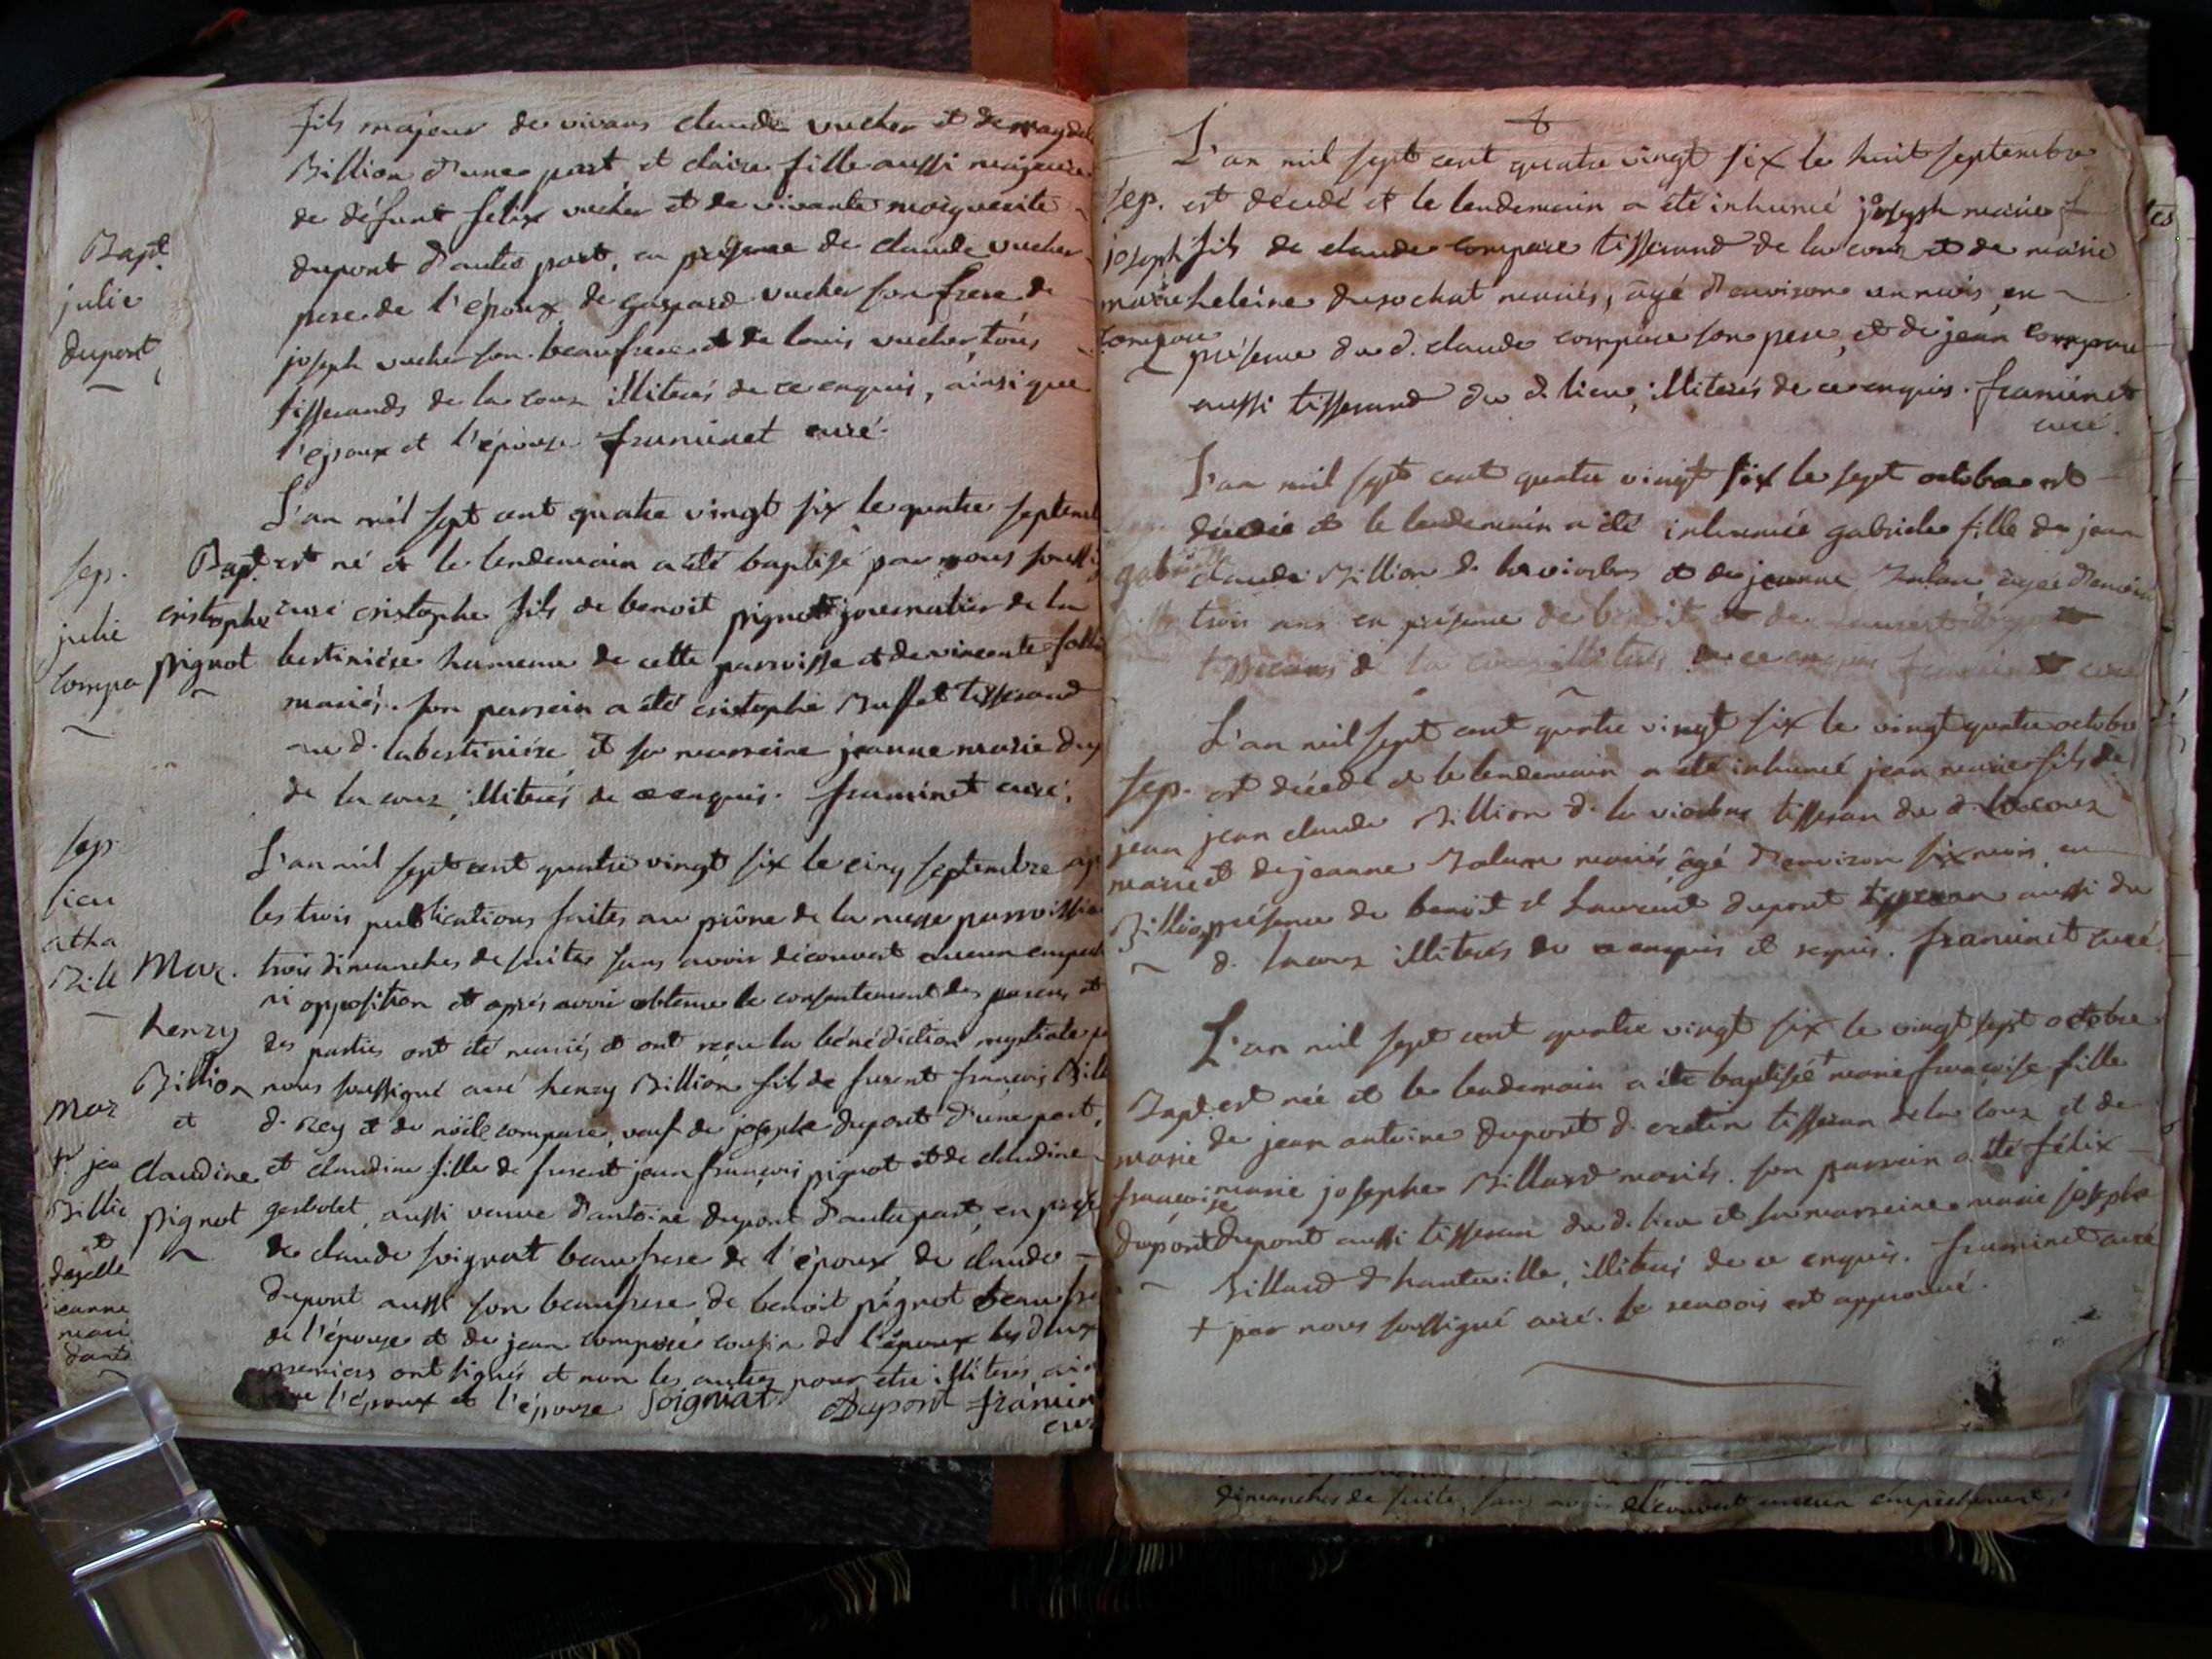 fils majeur de vivans claude vucher et de magdel
Billion d'une part, et claire fille aussi majeure
de défunt felix vucher et de vivante marguerite
dupont d'autre part, en présence de claude vucher
pere de l'époux de gaspard vucher son frere de
joseph vucher son beaufrere et de louis vucher, tous
tisserands de la coux illiterés de ce enquis, ainsi que
l'époux et l'épouse. franninet curé.
Bapt.
julie
dupont
L'an mil sept cent quatre vingt six le quatre septemb
Bapt. est né et le lendemain a été baptisé par nous souss
cristophe curé cristophe fils de benoit pignot journalier de la
pignot bestinière hameau de cette parroisse et de vincente
mariés. son parrain a été cristophe Buffet tisserand
au d. labestinière et sa marreine jeanne marie du
de la coux, illiterés de ce enquis. franninet curé.
sep.
julie
compa
L'an mil sept cent quatre vingt six le cinq septembre ap
les trois publications faites au prône de la messe parroissia
Mar. trois dimanches de suite, sans avoir découvert aucun empech
ni opposition et après avoir obtenu le consentement des parens et
henry des parties ont été mariés et ont reçu la bénédiction nuptiale p
Billion nous soussigné curé henry Billion fils de furent françois Bill
et d. rey et de noële compare, veuf de josephe dupont d'une part,
claudine et claudine fille de furent jean françois pignot et de claudine
pignot gerbolet, aussi veuve d'antoine dupont d'autre part, en prese
de claude soignat beaufrere de l'époux de claude
dupont aussi son beaufrere de benoit pignot beaufr
de l'épouse et de jean compare cousin de l'époux les deux
premiers ont signés et non les autres pour etre illiterés ain
que l'époux et l'épouse Soignat Dupont franin
cur
sep
lieu
atha
Bill
Mar
jea
Billio
et
jeanne
mari
L'an mil sept cent quatre vingt six le huit septembre
sep. est décedé et le lendemain a été inhumé joseph marie
joseph fils de claude compare tisserand de la coux et de marie
marie heleine dusochat mariés, âgé d'environ un mois, en
compare présence du d. claude compare son pere, et de jean compare
aussi tisserand du d. lieu, illiterés de ce enquis. franninet
curé.
L'an mil sept cent quatre vingt six le sept octobre est
décedée et le lendemain a été inhumée gabriele fille de jean
claude Billion d. la viorbes et de jeanne âgée d'environ
trois ans en présence de benoit et de laurent
de la coux illiterés de ce enquis franninet curé
L'an mil sept cent quatre vingt six le vingt quatre octobre
sep. est décedé et le lendemain a été inhumé jean marie fils de
jean jean claude Billion d. la viorbes tisseran du d. lacoux
marie et de jeanne mariés, âgé d'environ six mois, en
Billion présence de benoit et Laurent dupont tisseran aussi du
d. lacoux illiterés de ce enquis et requis. franninet curé.
L'an mil sept cent quatre vingt six le vingt sept octobre
Bapt. est née et le lendemain a été baptisée + marie françoise fille
marie de jean antoine dupont d. cretin tisseran de la coux et de
françoise marie josephe Billard mariés. son parrain a été félix
dupont dupont aussi tisseran du d. lieu et sa marreine marie josephe
Billard d'hauteville, illiterés de ce enquis. franninet curé
+ par nous soussigné curé. le renvois est approuvé.
dimanches de suite, sans avoir découvert aucun empêchement,